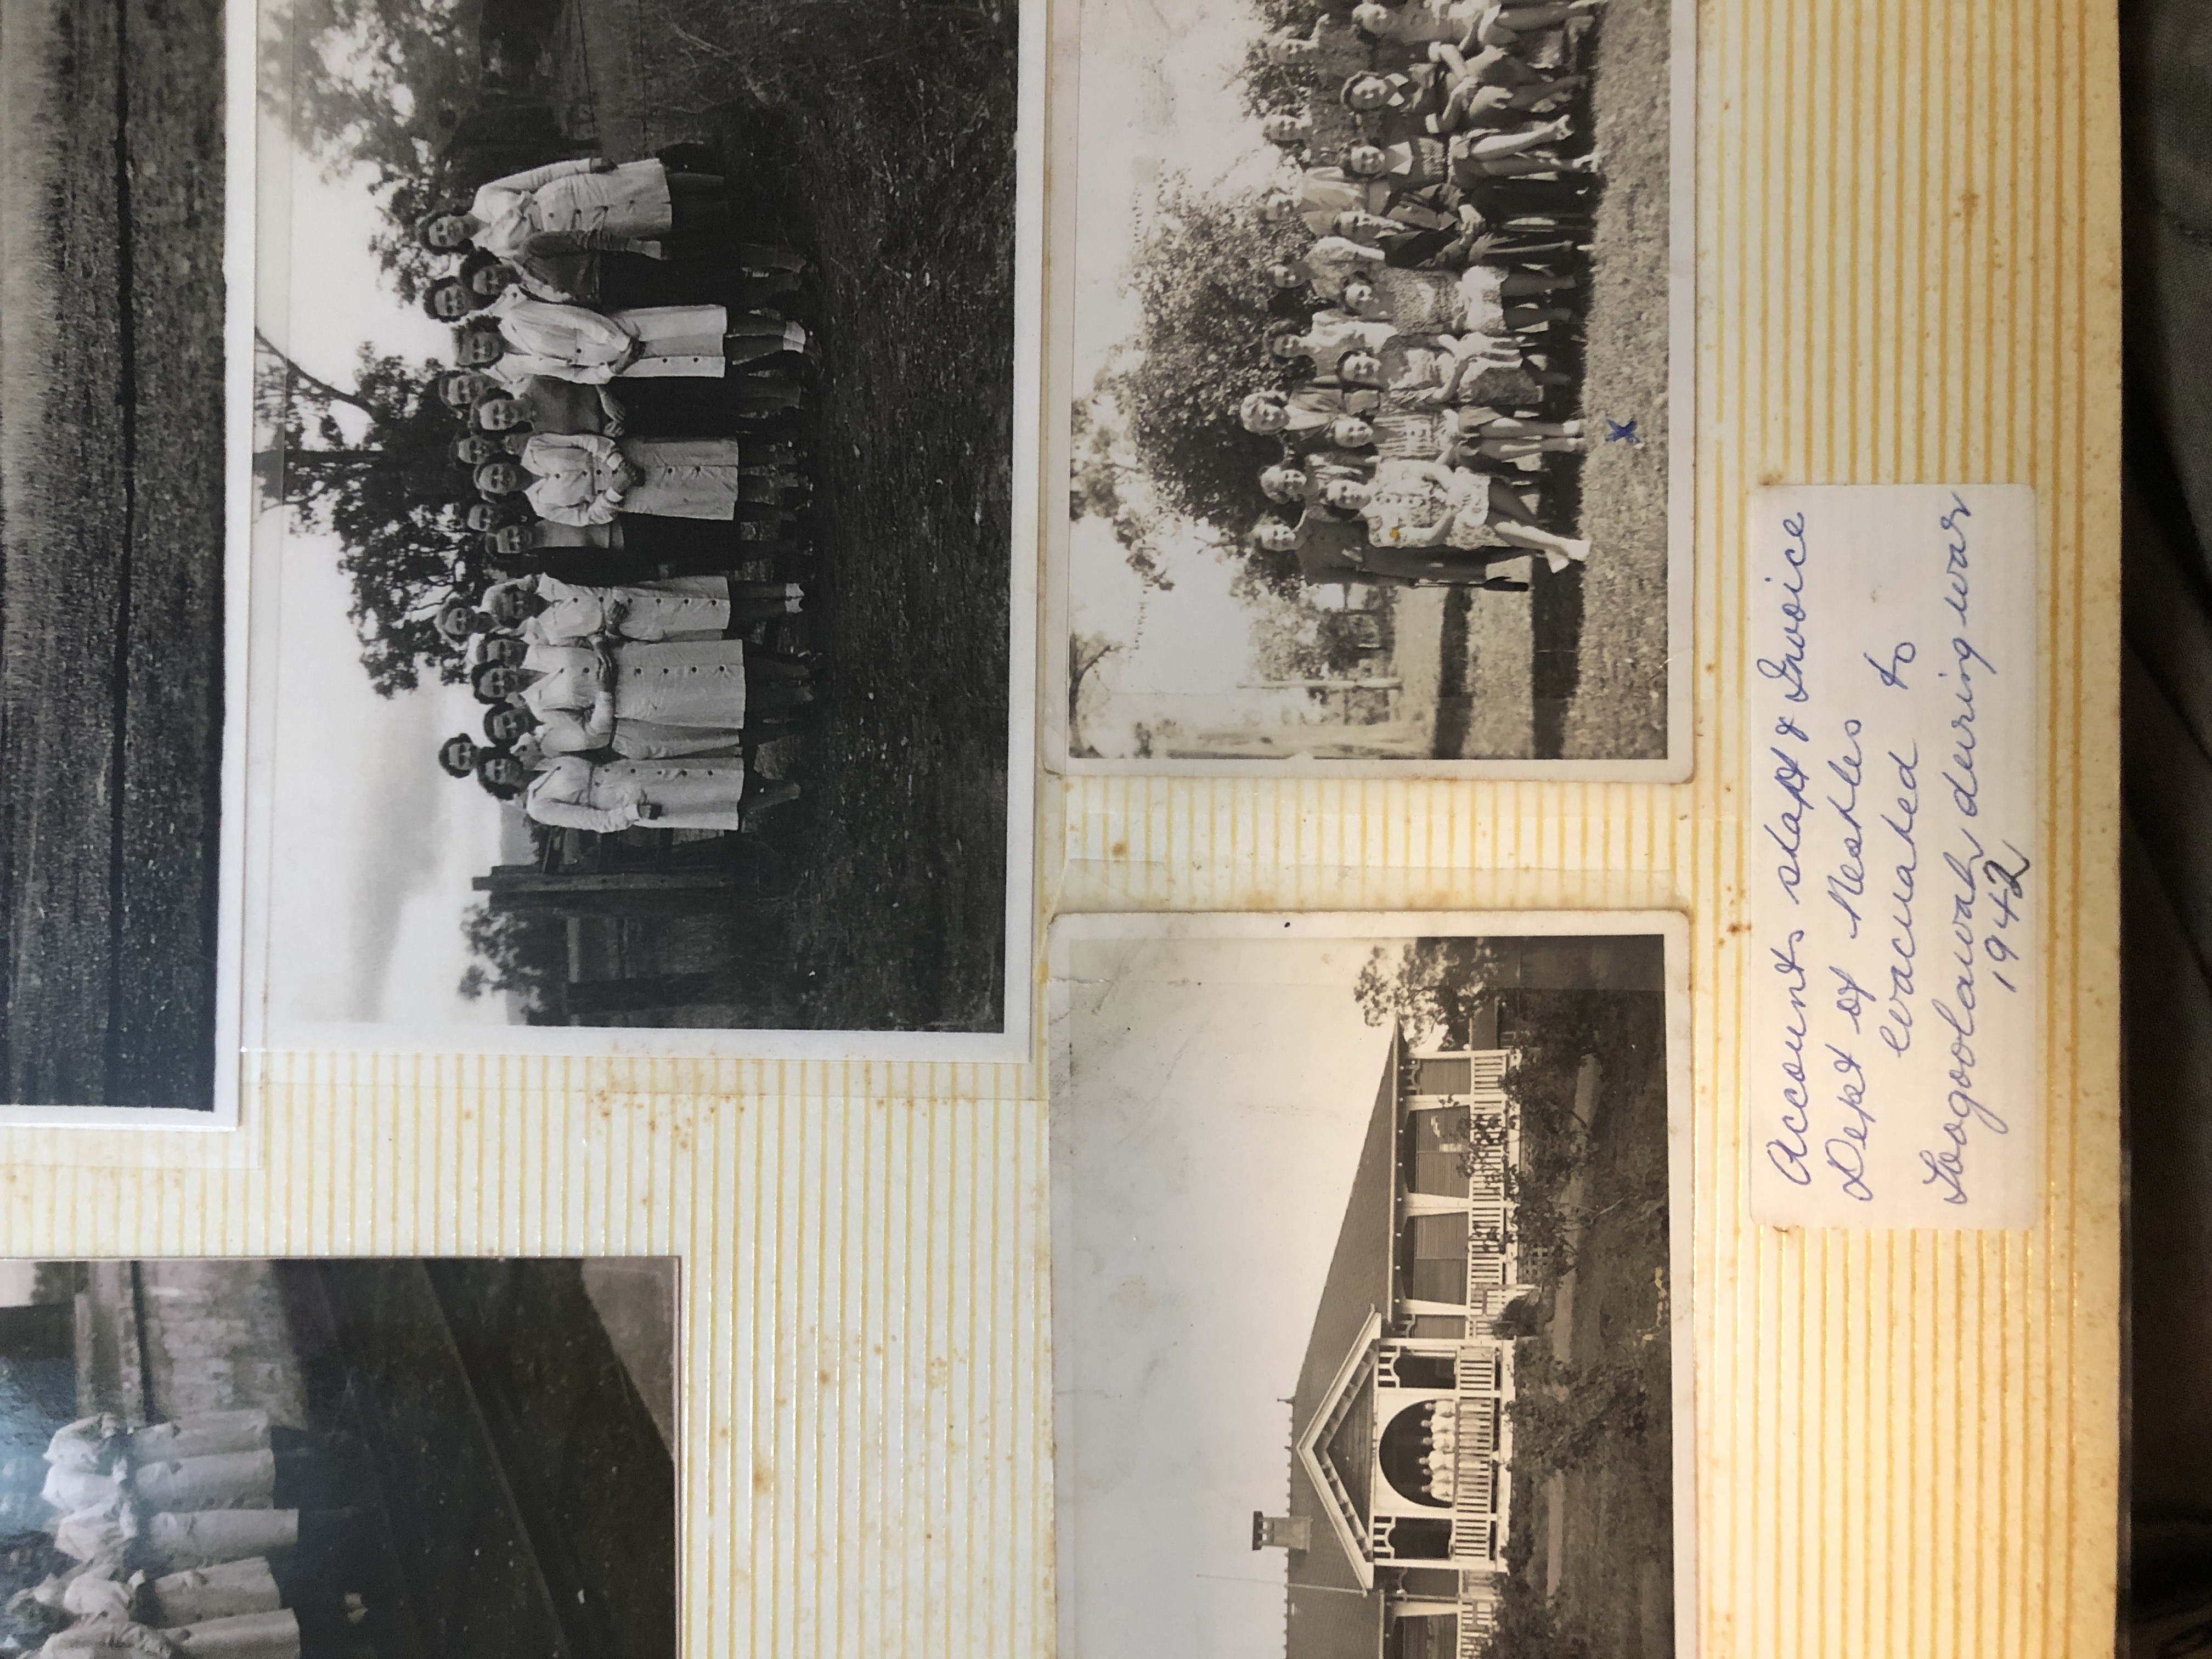 Accounts staff & Invoice
Dept of Nestles
evacuated to
Toogoolawah during war
1942
X